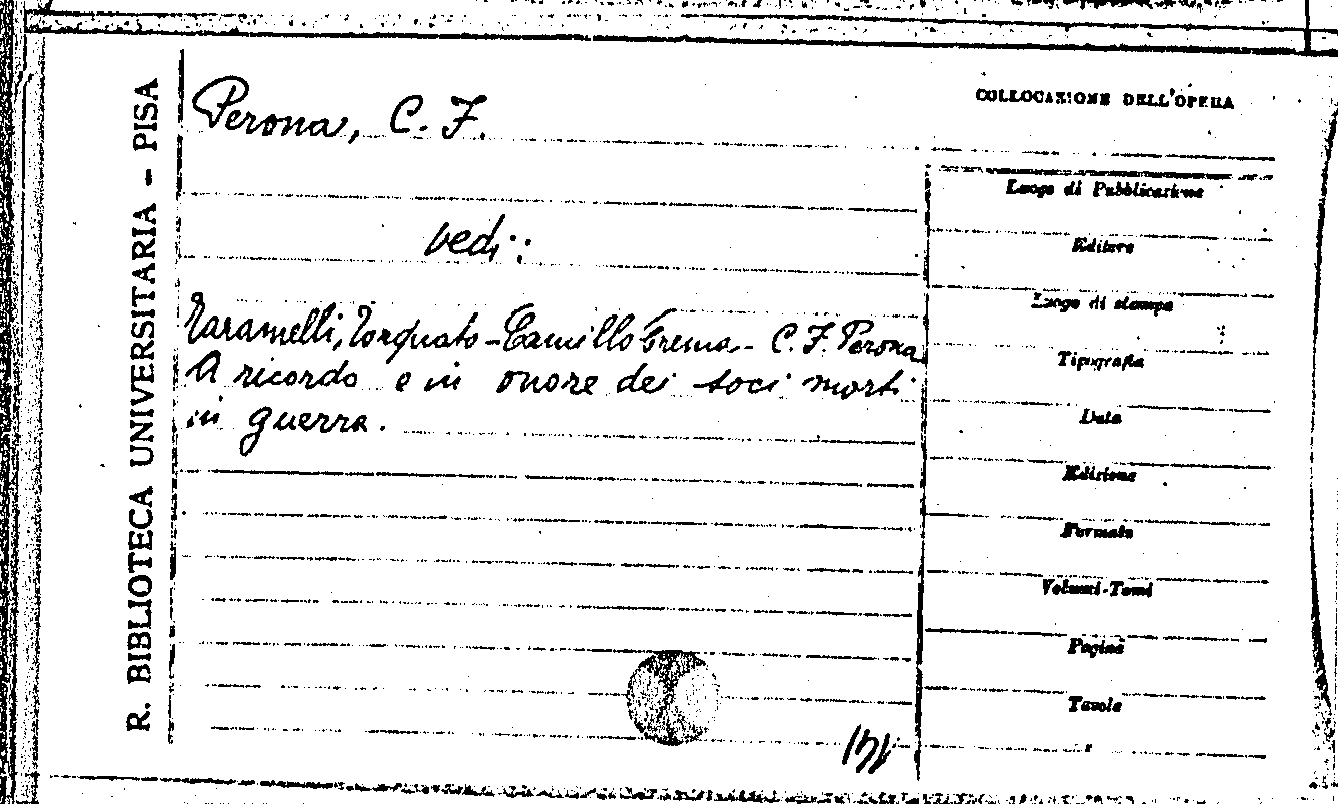 R. BIBLIOTECA UNIVERSITARIA - PISA
Perona, C. F.
vedi:
Taramelli, Torquato - Camillo Crema - C. F. Perona
A ricordo e in onore dei soci morti
in guerra.
COLLOCAZIONE DELL'OPERA
Luogo di Pubblicazione
Editore
Luogo di stampa
Tipografia
Data
Edizione
Formato
Volumi-Tomi
Pagine
Tavole